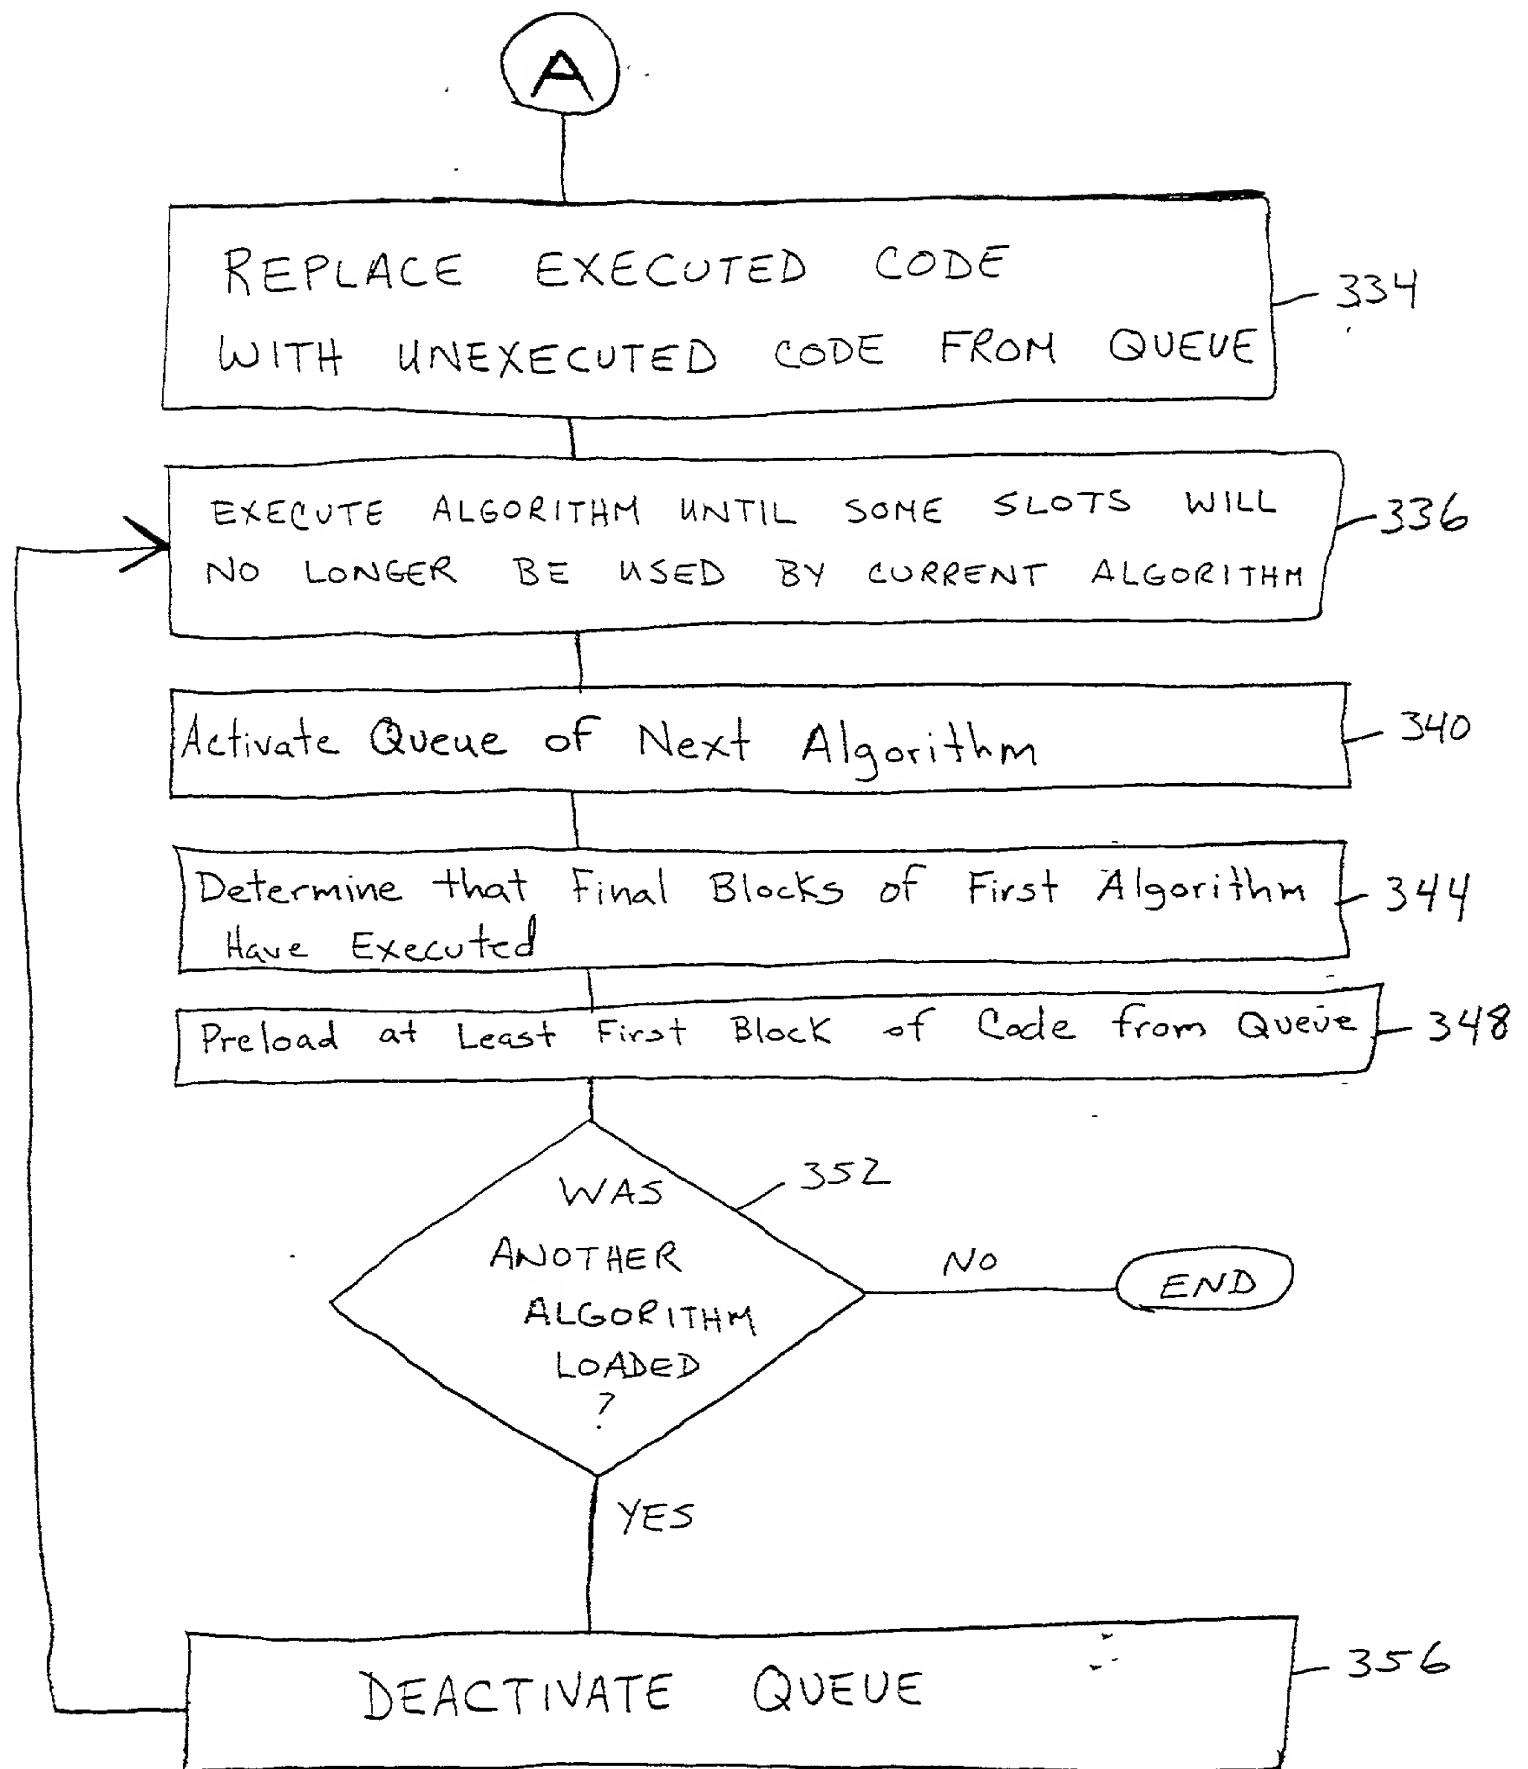 A
REPLACE EXECUTED CODE
WITH UNEXECUTED CODE FROM QUEUE
334
EXECUTE ALGORITHM UNTIL SOME SLOTS WILL
NO LONGER BE USED BY CURRENT ALGORITHM
336
Activate Queue of Next Algorithm
340
Determine that Final Blocks of First Algorithm
Have Executed
344
Preload at Least First Block of Code from Queue
348
352
WAS
ANOTHER
ALGORITHM
LOADED
?
NO
END
YES
DEACTIVATE QUEUE
356